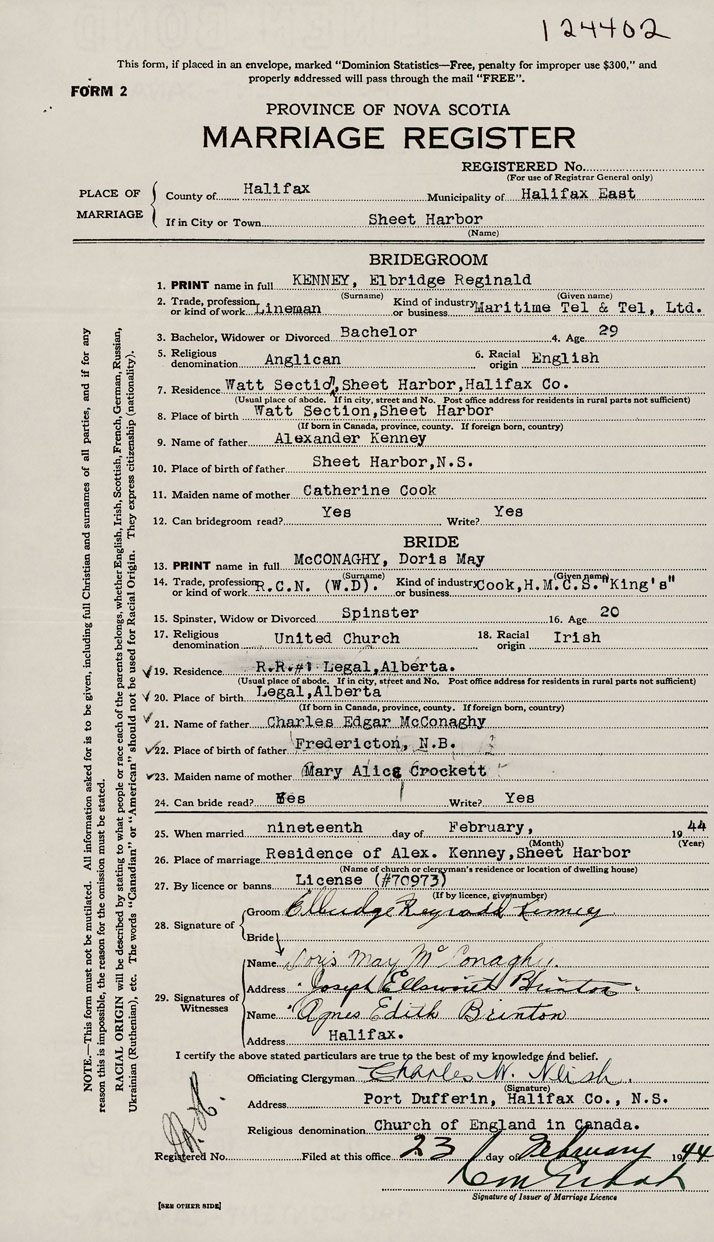 124402
This form, if placed in an envelope, marked "Dominion Statistics—Free, penalty for improper use $300," and
properly addressed will pass through the mail "FREE".
FORM 2
PROVINCE OF NOVA SCOTIA
MARRIAGE REGISTER
REGISTERED No.
(For use of Registrar General only)
PLACE OF MARRIAGE
County of Halifax Municipality of Halifax East
If in City or Town Sheet Harbor
(Name)
BRIDEGROOM
1. PRINT name in full KENNEY, Elbridge Reginald
(Surname) (Given name)
2. Trade, profession or kind of work Lineman Kind of industry or business Maritime Tel & Tel, Ltd.
3. Bachelor, Widower or Divorced Bachelor 4. Age 29
5. Religious denomination Anglican 6. Racial origin English
7. Residence Watt Section, Sheet Harbor, Halifax Co.
(Usual place of abode. If in city, street and No. Post office address for residents in rural parts not sufficient)
8. Place of birth Watt Section, Sheet Harbor
(If born in Canada, province, county. If foreign born, country)
9. Name of father Alexander Kenney
10. Place of birth of father Sheet Harbor, N.S.
11. Maiden name of mother Catherine Cook
12. Can bridegroom read? Yes Write? Yes
BRIDE
13. PRINT name in full McCONAGHY, Doris May
(Surname) (Given name)
14. Trade, profession or kind of work R.C.N. (W.D). Kind of industry or business Cook, H.M.C.S. "King's"
15. Spinster, Widow or Divorced Spinster 16. Age 20
17. Religious denomination United Church 18. Racial origin Irish
19. Residence R.R.#1 Legal, Alberta.
(Usual place of abode. If in city, street and No. Post office address for residents in rural parts not sufficient)
20. Place of birth Legal, Alberta
(If born in Canada, province, county. If foreign born, country)
21. Name of father Charles Edgar McConaghy
22. Place of birth of father Fredericton, N.B.
23. Maiden name of mother Mary Alice Crockett
24. Can bride read? Yes Write? Yes
25. When married nineteenth day of February, 1944
(Month) (Year)
26. Place of marriage Residence of Alex. Kenney, Sheet Harbor
(Name of church or clergyman's residence or location of dwelling house)
27. By licence or banns License (#70973)
(If by licence, give number)
28. Signature of
Groom Elbridge Reginald Kenney
Bride
Name Doris May McConaghy.
29. Signatures of Witnesses
Address Joseph Ellsworth Brinton
Name Agnes Edith Brinton
Address Halifax.
I certify the above stated particulars are true to the best of my knowledge and belief.
Officiating Clergyman Charles W. Neish.
(Signature)
Address Port Dufferin, Halifax Co., N.S.
Religious denomination Church of England in Canada.
Registered No. Filed at this office 23 day of February 1944
Signature of Issuer of Marriage Licence
[SEE OTHER SIDE]
NOTE.—This form must not be mutilated. All information asked for is to be given, including full Christian and surnames of all parties, and if for any
reason this is impossible, the reason for the omission must be stated.
RACIAL ORIGIN will be described by stating to what people or race each of the parents belongs, whether English, Irish, Scottish, French, German, Russian,
Ukrainian (Ruthenian), etc. The words "Canadian" or "American" should not be used for Racial Origin. They express citizenship (nationality).